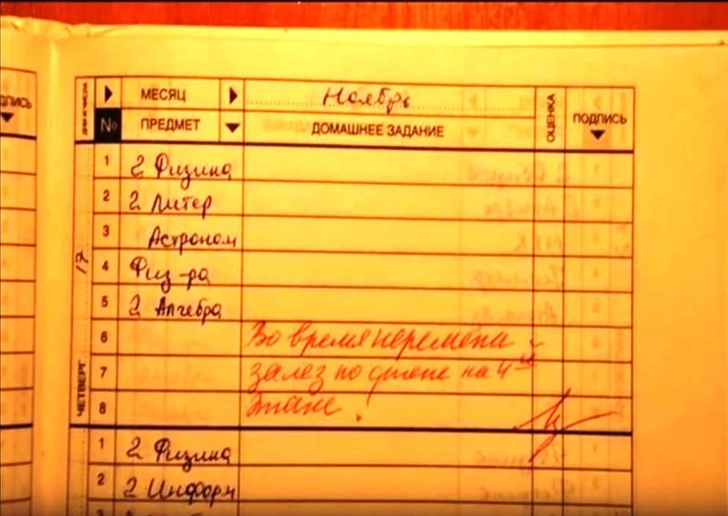 ДПИСЬ
ДНИ И ЧИСЛА
МЕСЯЦ Ноябрь ОЦЕНКА ПОДПИСЬ
№ ПРЕДМЕТ ДОМАШНЕЕ ЗАДАНИЕ
ЧЕТВЕРГ 17
1 2 Физика
2 2 Литер
3 Астроном
4 Физ-ра
5 2 Алгебра
6 Во время перемены
7 залез по стене на 4ый
8 этаж!
1 2 Физика
2 2 Информ
3